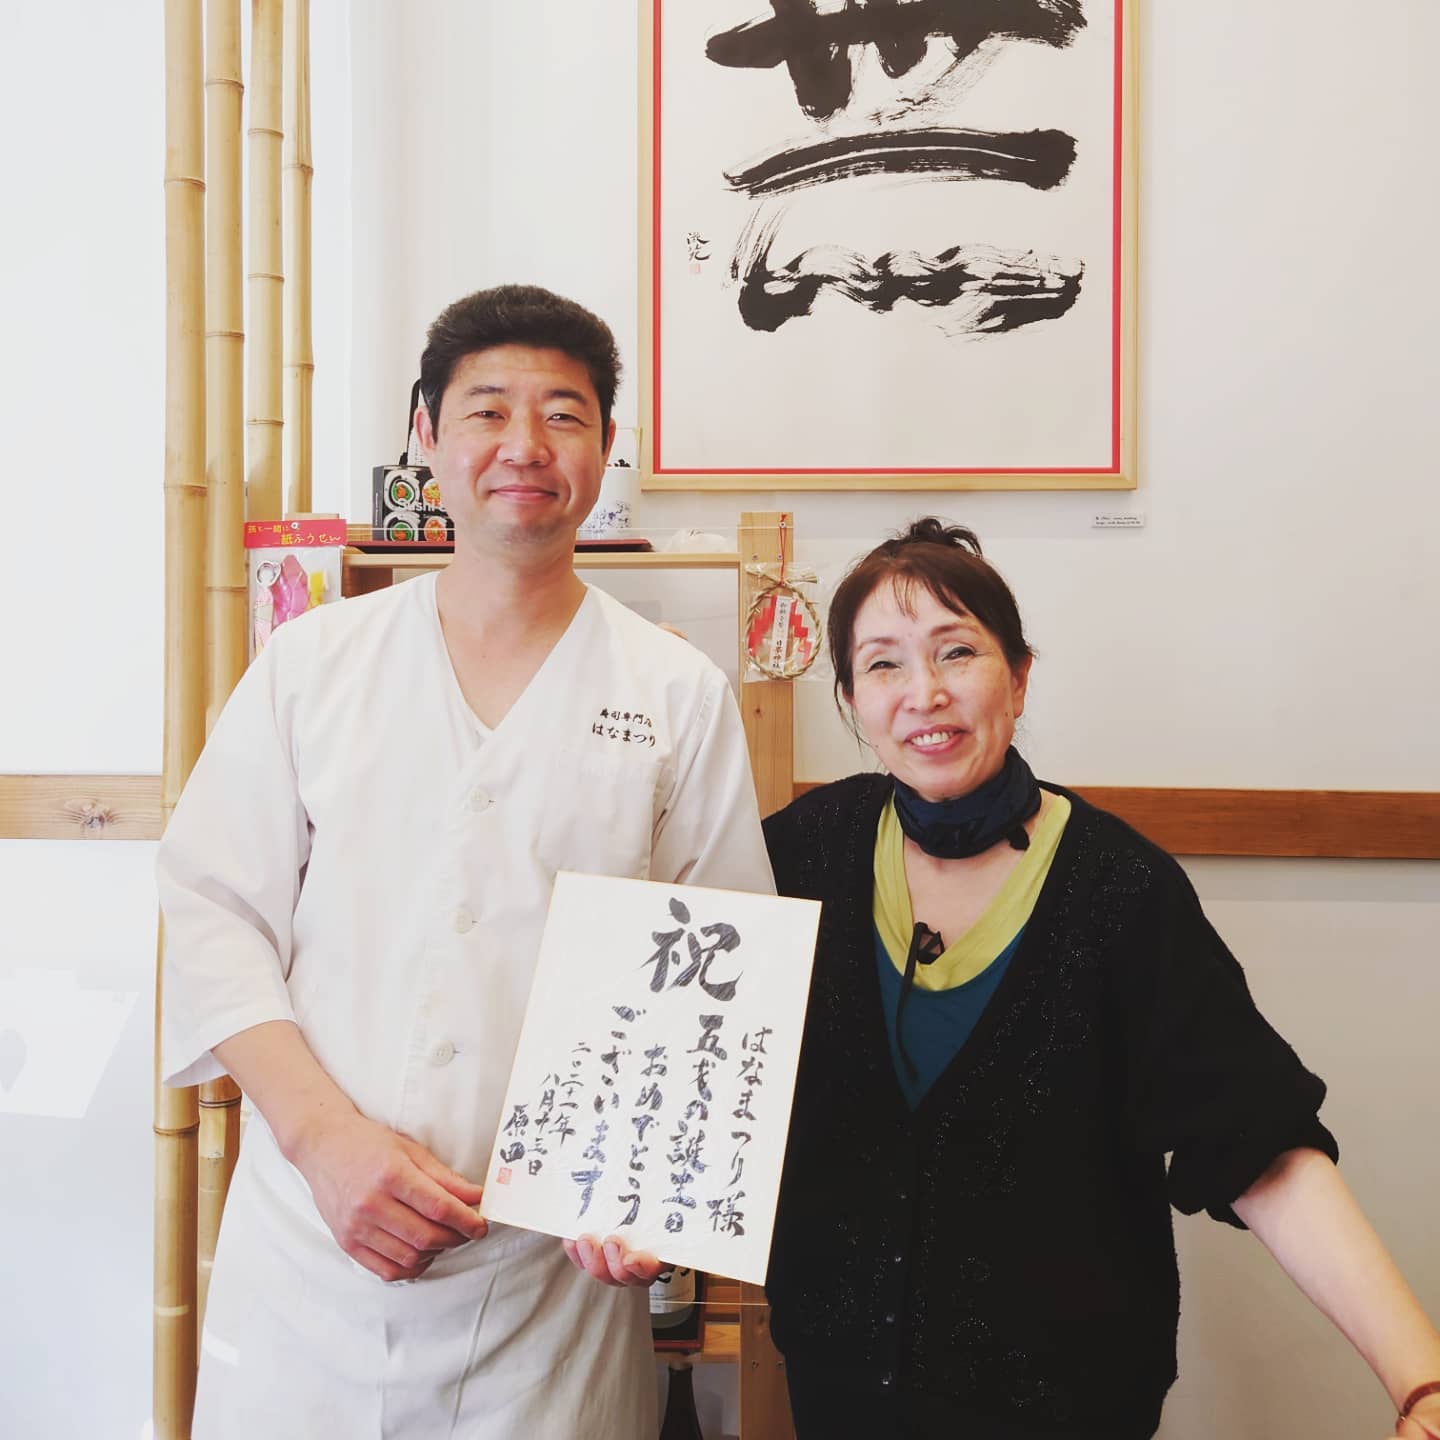 無
激光
Sushi
孫と一緒に
紙ふうせん
日枝神社
寿司専門店
はなまつり
祝
はなまつり様
五才の誕生日
おめでとう
ございます
二〇二一年
八月十三日
原田